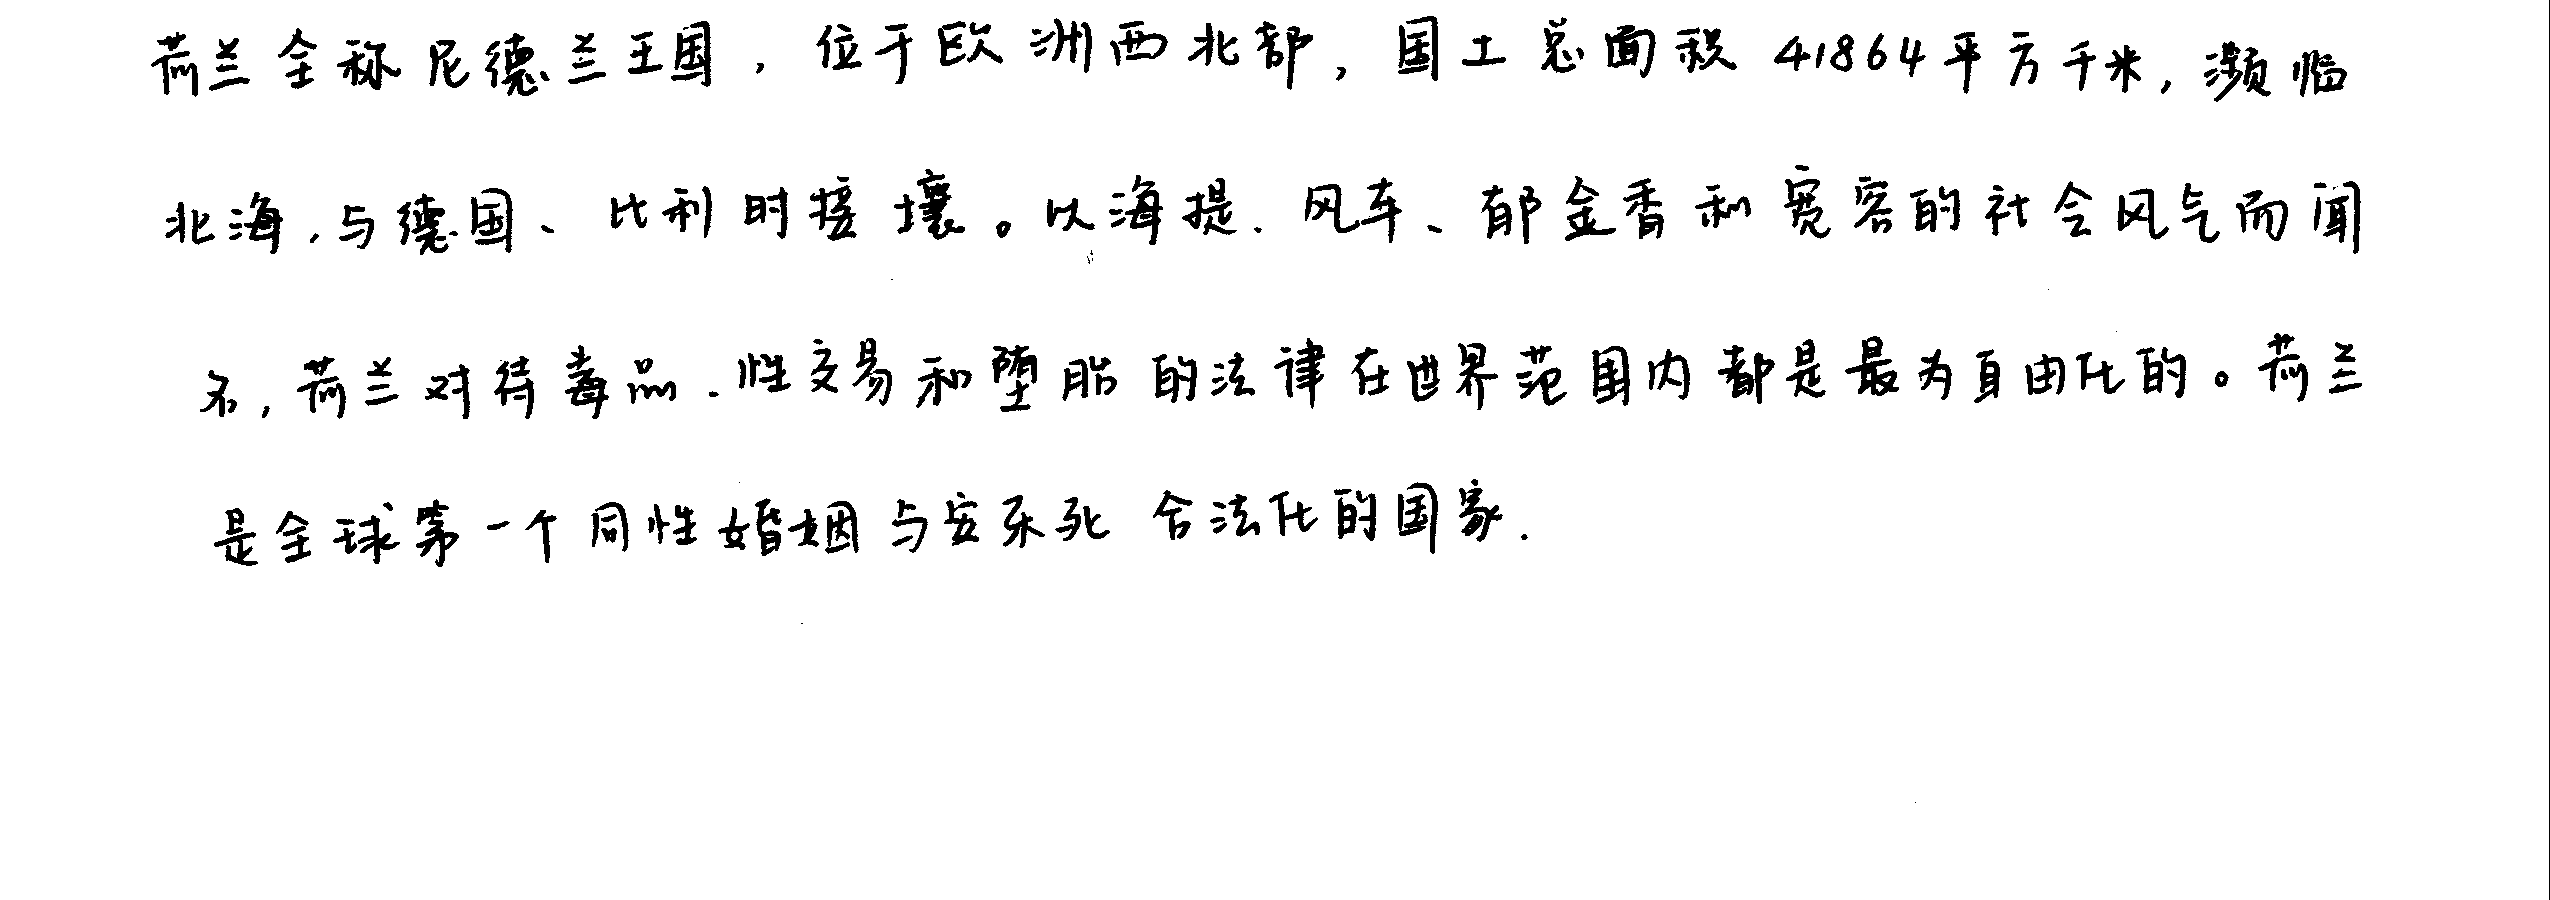 荷兰全称尼德兰王国，位于欧洲西北部，国土总面积41864平方千米，濒临
北海，与德国、比利时接壤。以海提、风车、郁金香和宽容的社会风气而闻
名，荷兰对待毒品、性交易和堕胎的法律在世界范围内都是最为自由化的。荷兰
是全球第一个同性婚姻与安乐死合法化的国家.